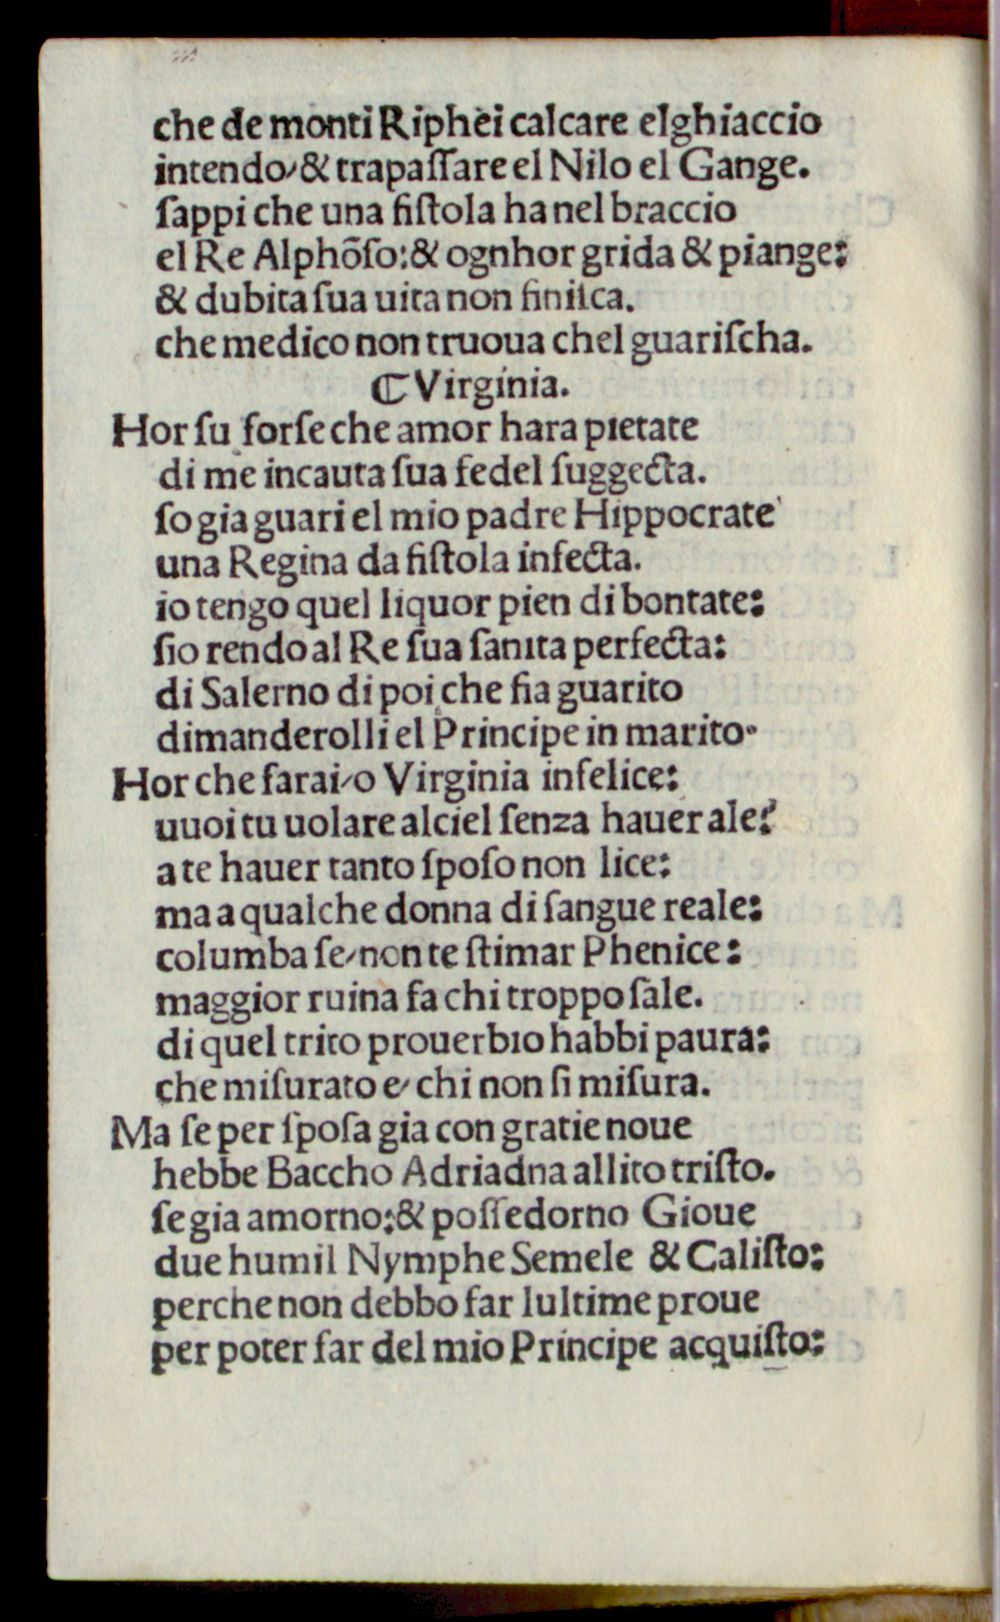 che de monti Riphei calcare elghiaccio
intendo/& trapaſſare el Nilo el Gange.
ſappi che una fiſtola ha nel braccio
el Re Alphõſo:& ognhor grida & piange:
& dubita ſua uita non finiſca.
che medico non truoua chel guariſcha.
ℂVirginia.
Hor ſu forſe che amor hara pietate
di me incauta ſua fedel ſuggecta.
ſo gia guari el mio padre Hippocrate
una Regina da fiſtola infecta.
io tengo quel liquor pien di bontate:
ſio rendo al Re ſua ſanita perfecta:
di Salerno di poi che fia guarito
dimanderolli el Principe in marito.
Hor che farai/o Virginia infelice:
uuoi tu uolare alciel ſenza hauer ale?
a te hauer tanto ſpoſo non lice:
ma a qualche donna di ſangue reale:
columba ſe/non te ſtimar Phenice:
maggior ruina fa chi troppo ſale.
di quel trito prouerbio habbi paura:
che miſurato e/ chi non ſi miſura.
Ma ſe per ſpoſa gia con gratie noue
hebbe Baccho Adriadna allito triſto.
ſe gia amorno:& poſſedorno Gioue
due humil Nymphe Semele & Caliſto:
perche non debbo far lultime proue
per poter far del mio Principe acquiſto: